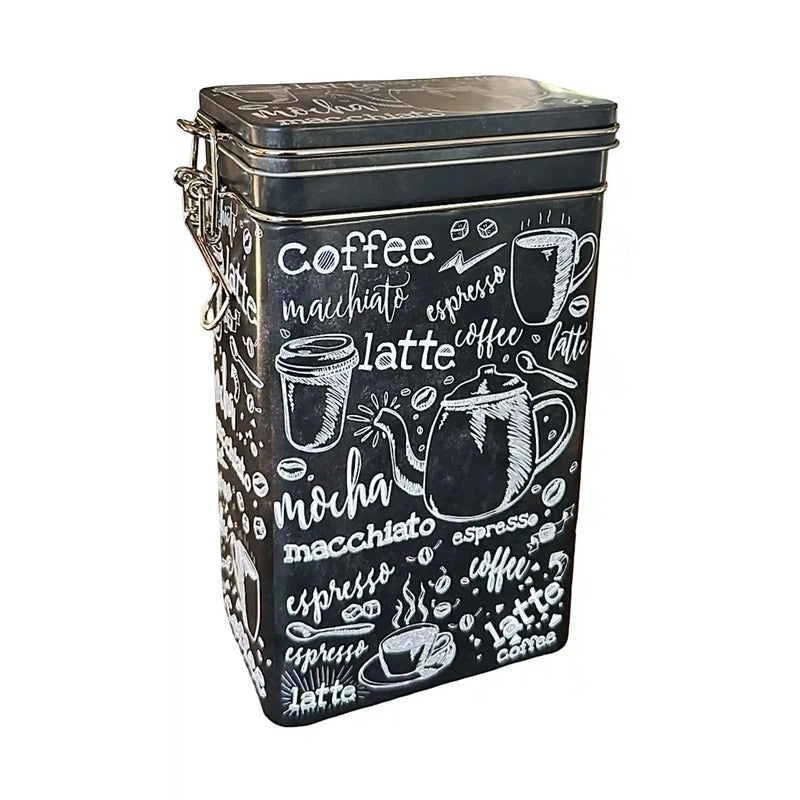 latte
mocha
macchiato
coffee
macchiato
espresso
coffee
latte
latte
mocha
macchiato
espresso
espresso
coffee
espresso
latte
latte
coffee
latte
mocha
macchiato
coffee